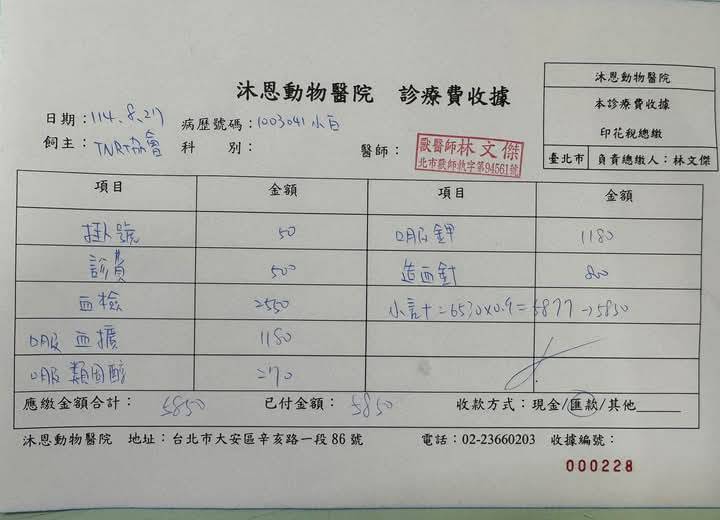 沐恩動物醫院 診療費收據
沐恩動物醫院
本診療費收據
印花稅總繳
臺北市 負責總繳人：林文傑
日期：114.8.27 病歷號碼：1003041 小白
飼主：TNR協會 科 別： 醫師：
獸醫師林文傑
北市獸師執字第94561號
項目 金額 項目 金額
掛號 50 口服鉀 1180
診費 500 造血針 800
血檢 2550 小計=6530x0.9=5877→5850
口服血擴 1180
口服類固醇 270
應繳金額合計： 5850 已付金額： 5850 收款方式：現金/匯款/其他
沐恩動物醫院 地址：台北市大安區辛亥路一段86號 電話：02-23660203 收據編號：
000228